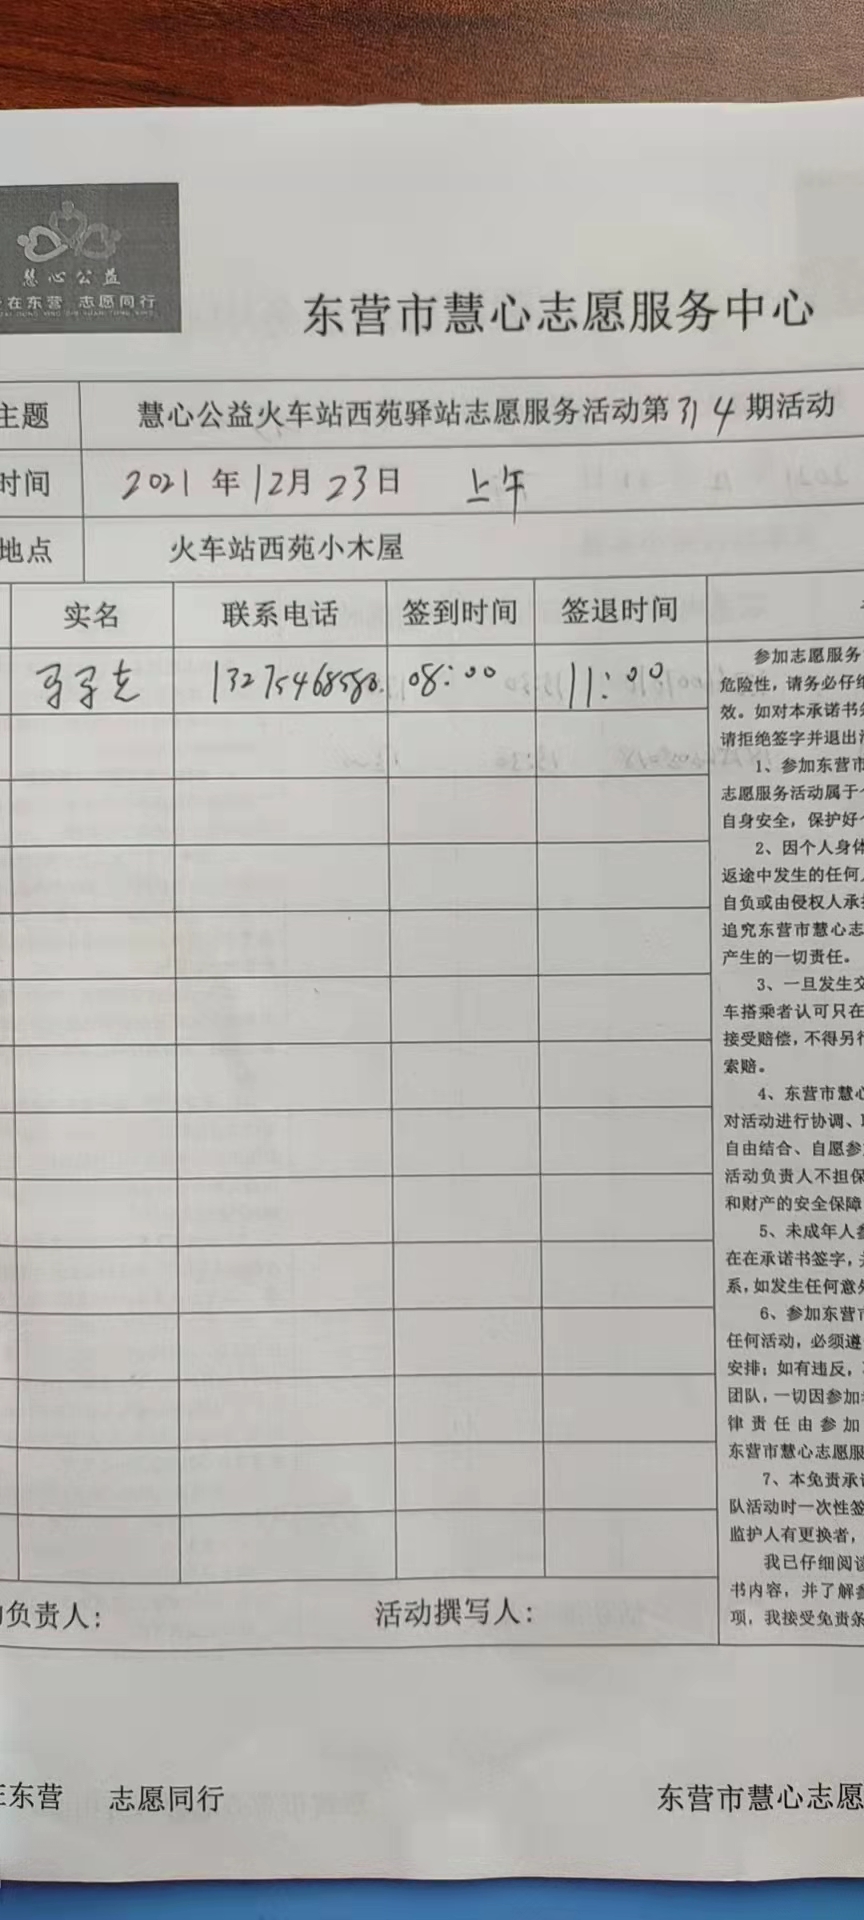 慧心公益
在东营 志愿同行
东营市慧心志愿服务中心
主题 慧心公益火车站西苑驿站志愿服务活动第314期活动
时间 2021年12月23日 上午
地点 火车站西苑小木屋
实名 联系电话 签到时间 签退时间
13275468580 08:00 11:00
参加志愿服务
危险性，请务必仔细
效。如对本承诺书
请拒绝签字并退出
1、参加东营市
志愿服务活动属于
自身安全，保护好
2、因个人身体
返途中发生的任何
自负或由侵权人承
追究东营市慧心志
产生的一切责任。
3、一旦发生交
车搭乘者认可只在
接受赔偿，不得另行
索赔。
4、东营市慧心
对活动进行协调、
自由结合、自愿参
活动负责人不担保
和财产的安全保障
5、未成年人参
在在承诺书签字，
系，如发生任何意外
6、参加东营市
任何活动，必须遵
安排；如有违反，
团队，一切因参加
律责任由参加
东营市慧心志愿服
7、本免责承诺
队活动时一次性签
监护人有更换者，
我已仔细阅读
书内容，并了解参
项，我接受免责条
负责人： 活动撰写人：
东营 志愿同行 东营市慧心志愿